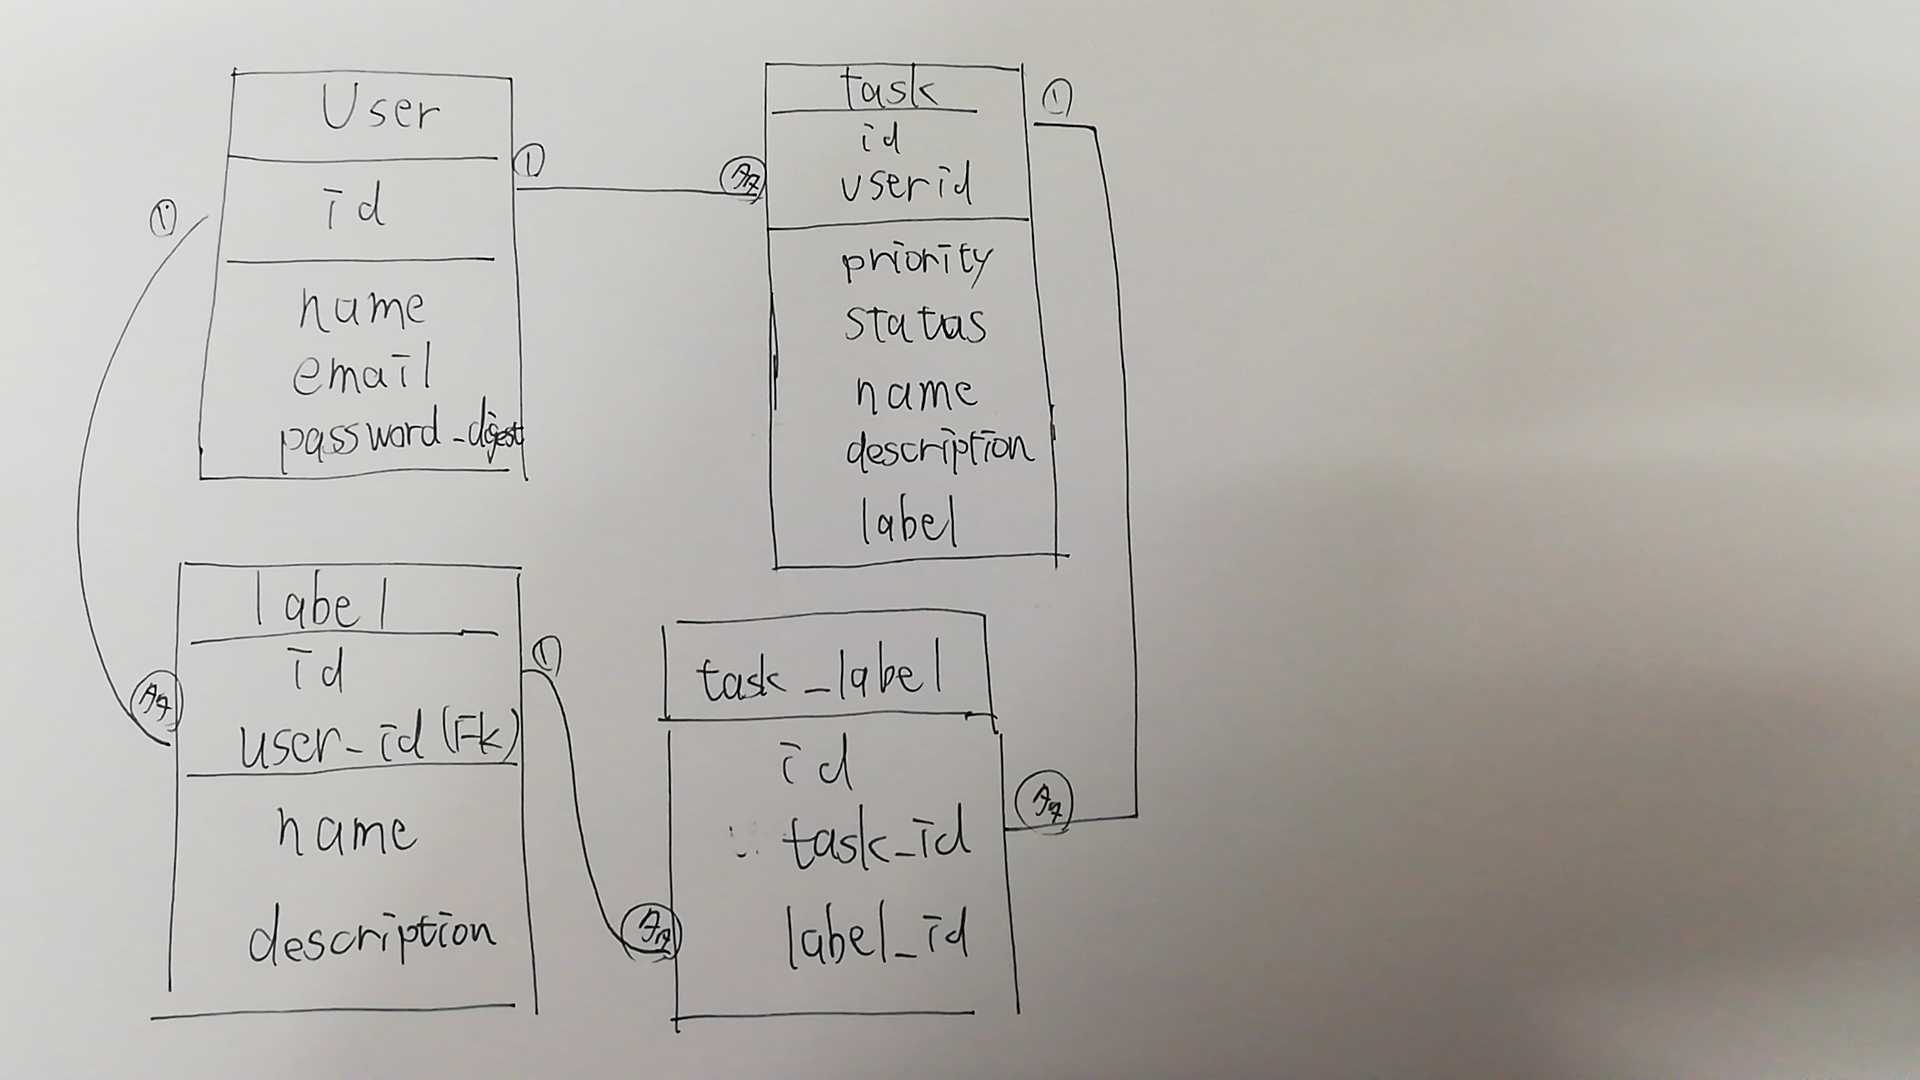 User
id
name
email
password_digest
①
①
task
id
userid
priority
status
name
description
label
①
label
id
user_id (Fk)
name
description
①
task_label
id
task_id
label_id